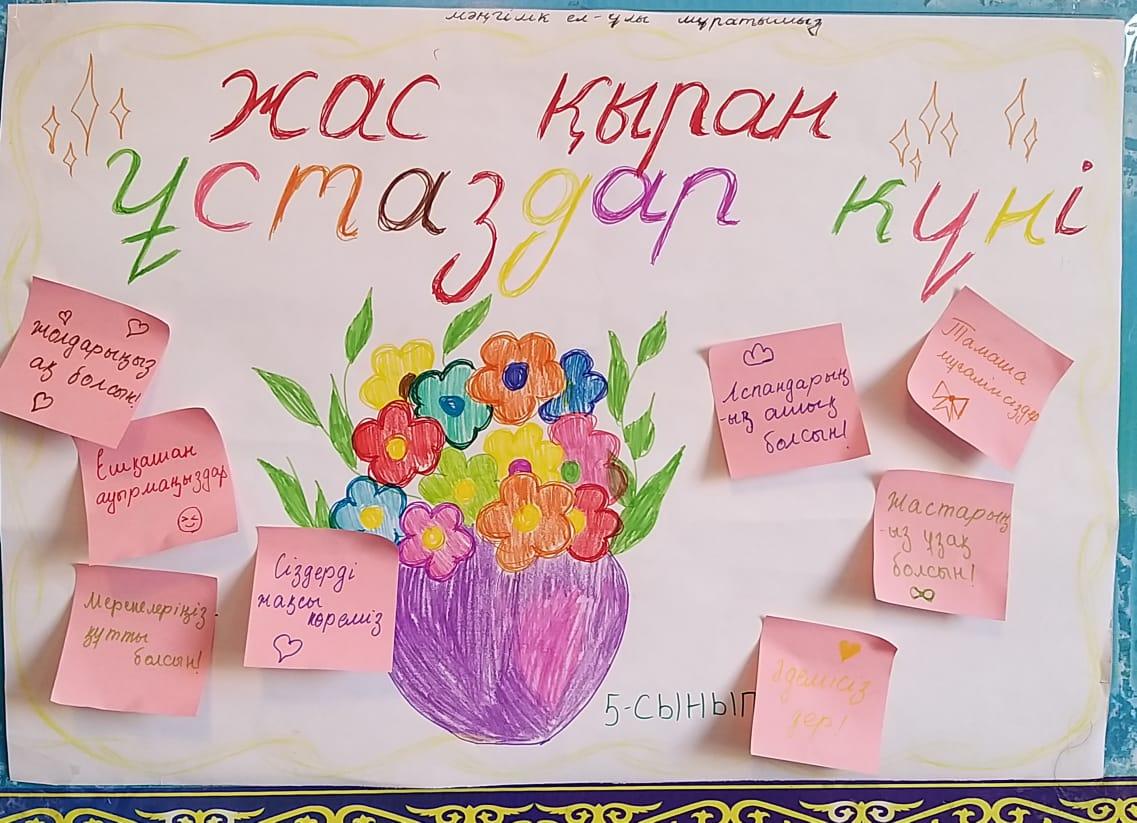 мәңгілік ел-ұлы мұратымыз
жас қыран
ұстаздар күні
Жолдарыңыз
ақ болсын!
Ешқашан
ауырмаңыздар
Мерекелеріңіз-
құтты
болсын!
Сіздерді
жақсы
көреміз
Аспандарың
-ыз ашық
болсын!
Тамаша
мұғалімсіздер
Жастарың
-ыз ұзақ
болсын!
Әдемісіз
дер!
5-СЫНЫП